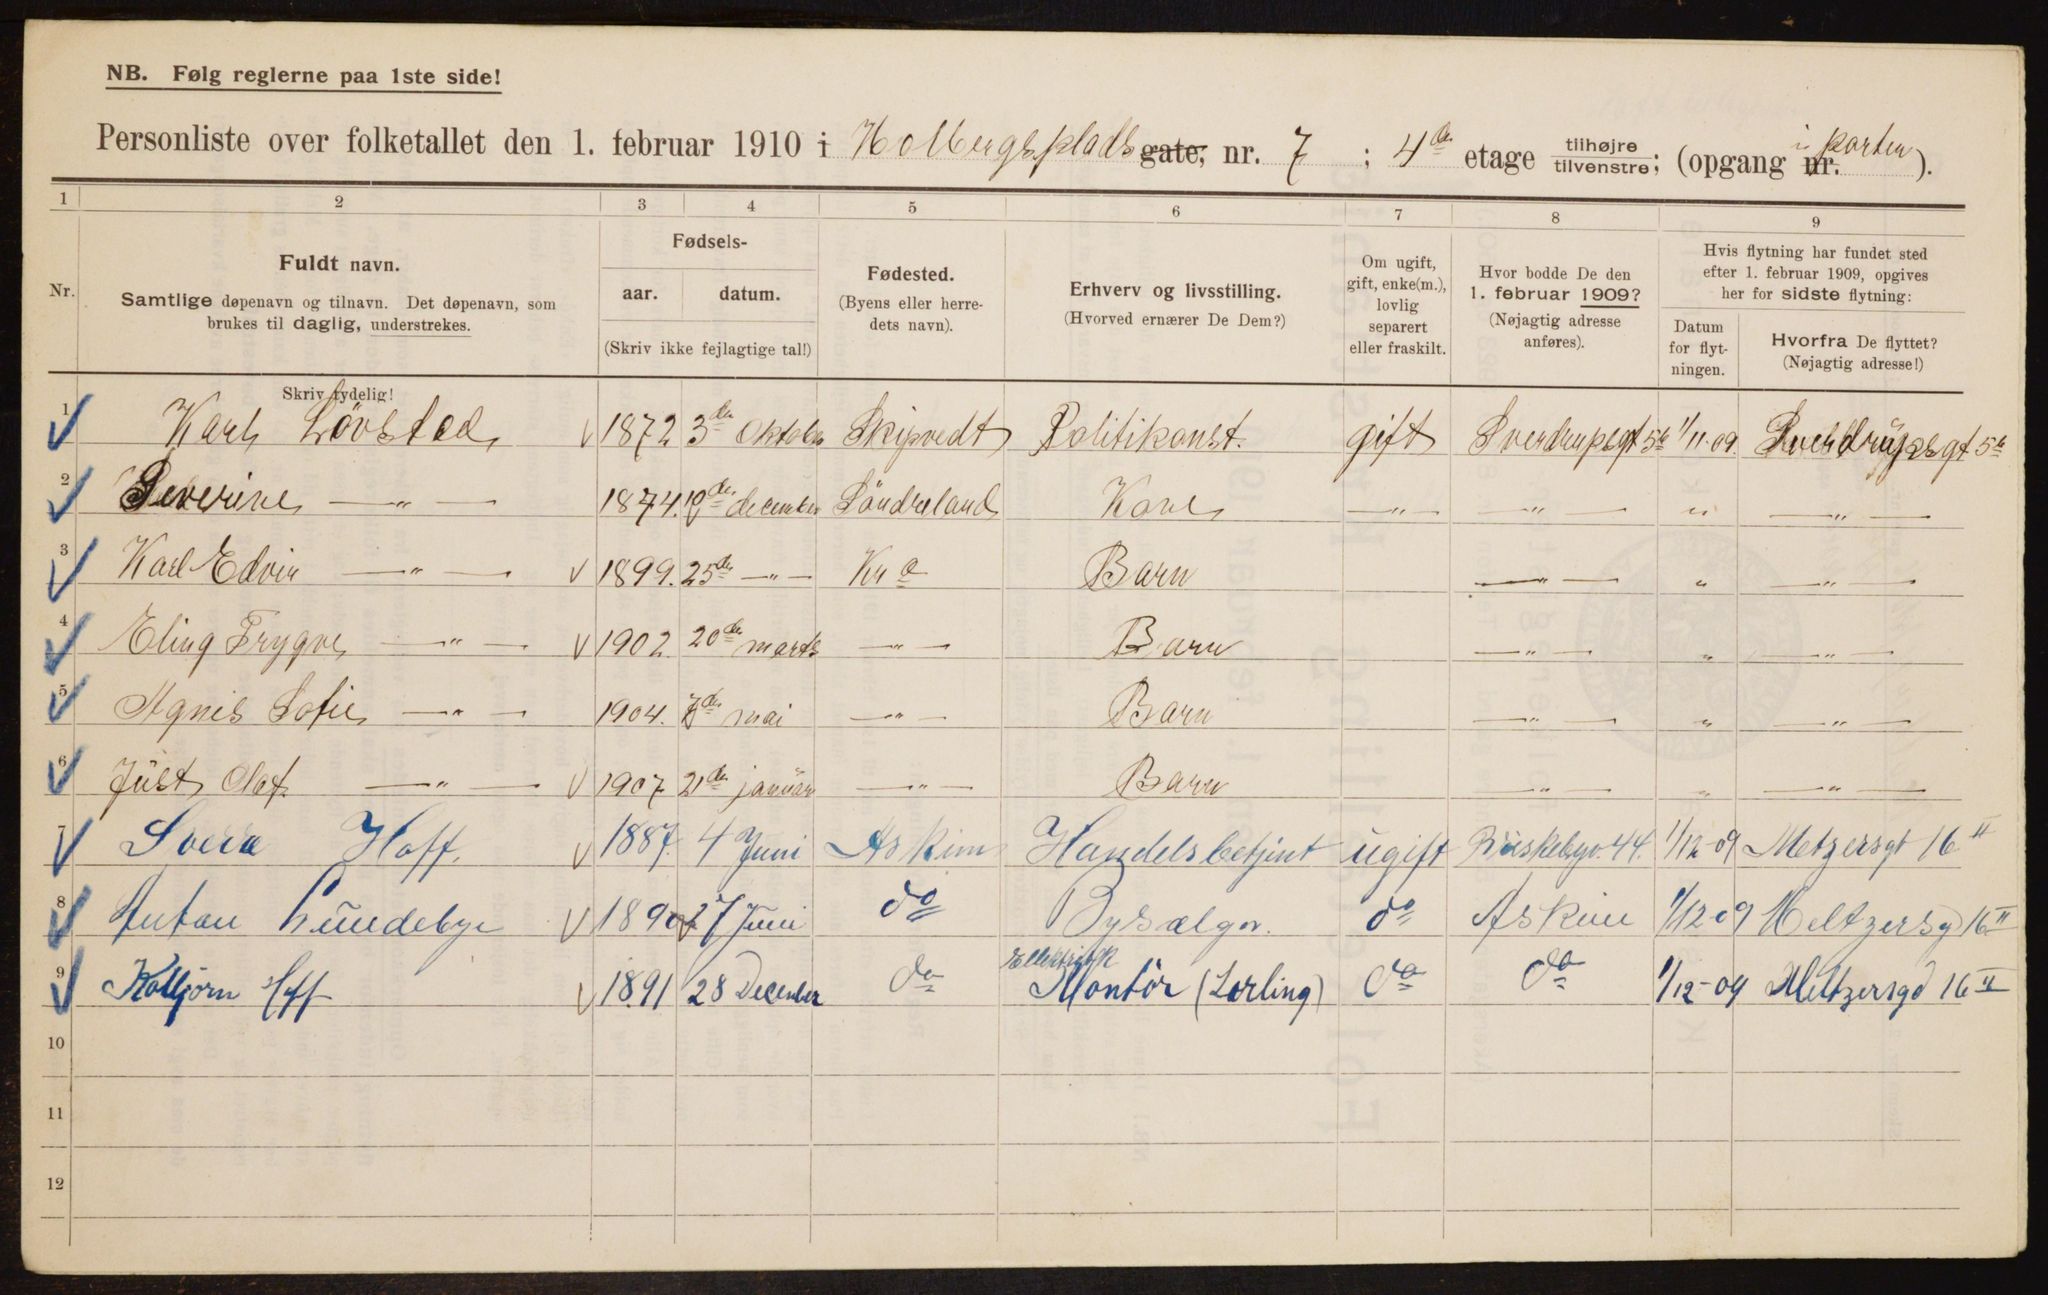 NB. Følg reglerne paa 1ste side!
Personliste over folketallet den 1. februar 1910 i Holbergsplads gate, nr. 7 ; 4de etage tilhøjre tilvenstre; (opgang nr. i porten ).
1 2 3 4 5 6 7 8 9
Nr.
Fuldt navn.
Samtlige døpenavn og tilnavn. Det døpenavn, som
brukes til daglig, understrekes.
Fødsels-
aar. datum.
(Skriv ikke fejlagtige tal!)
Fødested.
(Byens eller herre-
dets navn).
Erhverv og livsstilling.
(Hvorved ernærer De Dem?)
Om ugift,
gift, enke(m.),
lovlig
separert
eller fraskilt.
Hvor bodde De den
1. februar 1909?
(Nøjagtig adresse
anføres).
Hvis flytning har fundet sted
efter 1. februar 1909, opgives
her for sidste flytning:
Datum
for flyt-
ningen.
Hvorfra De flyttet?
(Nøjagtig adresse!)
Skriv tydelig!
1 Karl Lövstad 1872 3de Oktober Skipvedt Politikonst. gift Sverdrupsgt 5b 1/11-09. Sverdrüpsgt 5b
2 Severine —„— 1874. de december Söndreland Kone —„— —„— „ —„—
3 Karl Edvin —„— 1899. 25de —„— Kra Barn —„— „ —„—
4 Eling Trygve —„— 1902. 20de marts —„— Barn —„— „ —„—
5 Agnes Sofie —„— 1904. de mai —„— Barn —„— „ —„—
6 Jüst Olaf. —„— 1907 21de janüar —„— Barn —„— „ —„—
7 Sverre Hoff. 1887. 4 Juni Askim Handelsbetjent ugift Briskebyv. 44. 1/12-09 Metzersgt 16 II
8 Anton Lundebye 1890 27 Juni do do Askim 1/12-09 Meltzersg 16 II
9 Kolbjørn Hoff 1891 28 December do Elektrisk Montør (Lærling) do do 1/12-09 Meltzersgd 16 II
10
11
12